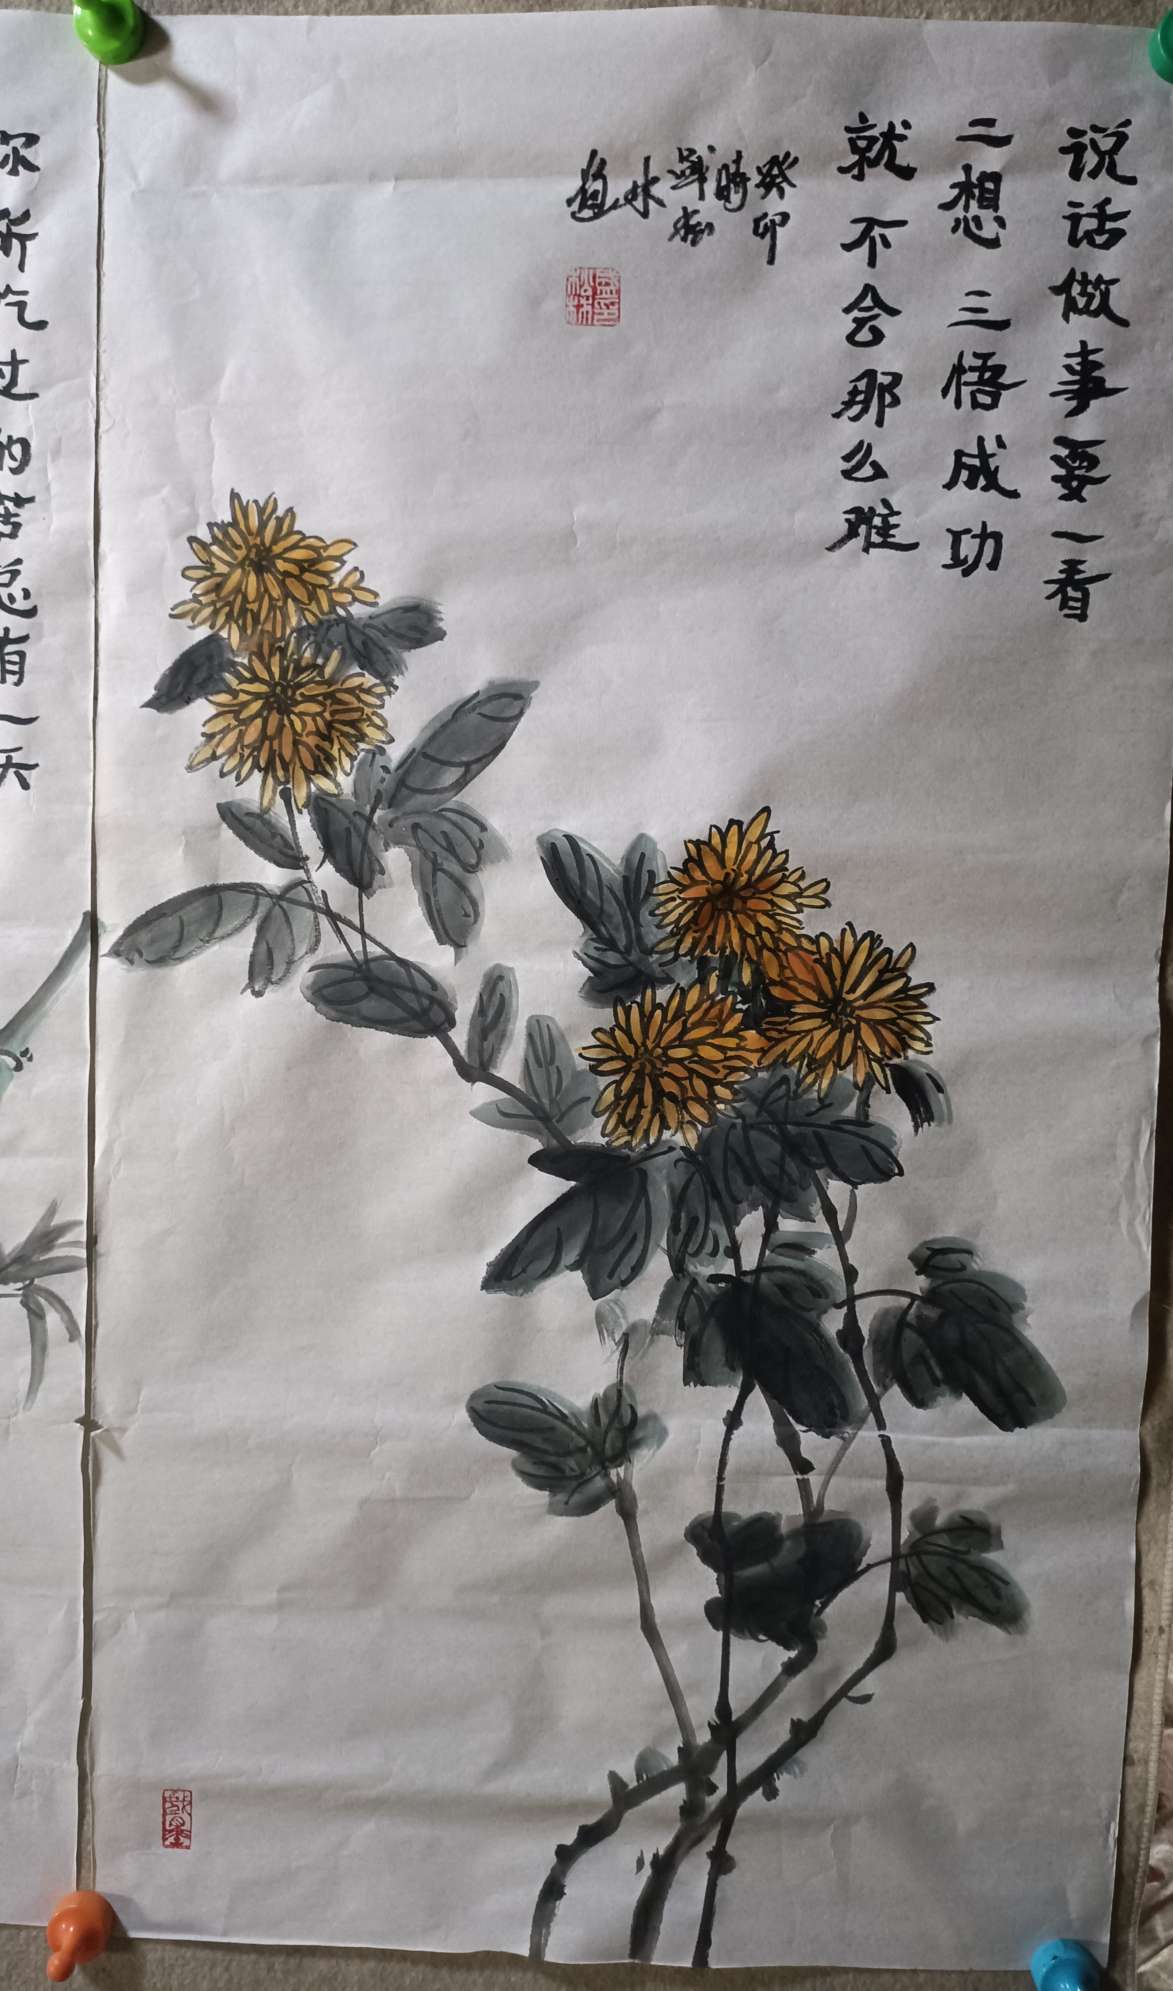 说话做事要一看
二想三悟成功
就不会那么难
癸卯
时
林
你所吃过的苦总有一天